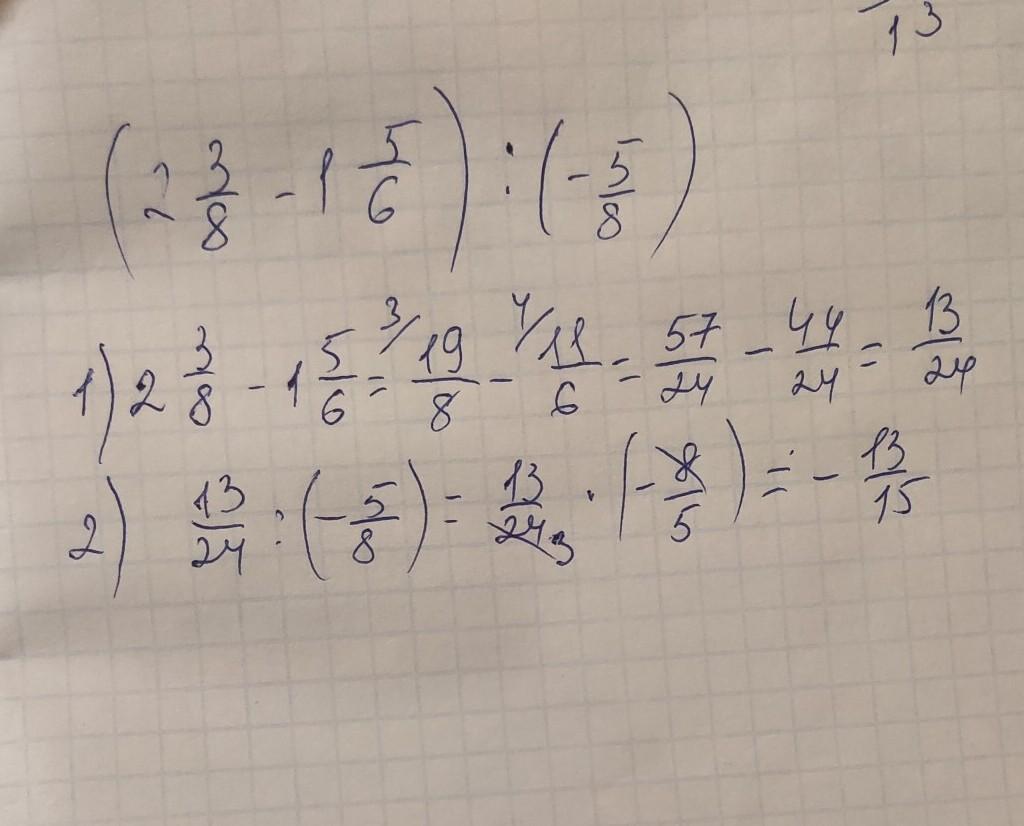 13
(2 3/8 - 1 5/6) : (- 5/8)
1) 2 3/8 - 1 5/6 = 3/ 19/8 - 4/ 11/6 = 57/24 - 44/24 = 13/24
2) 13/24 : (- 5/8) = 13/24 3 · (- 8/5) = - 13/15